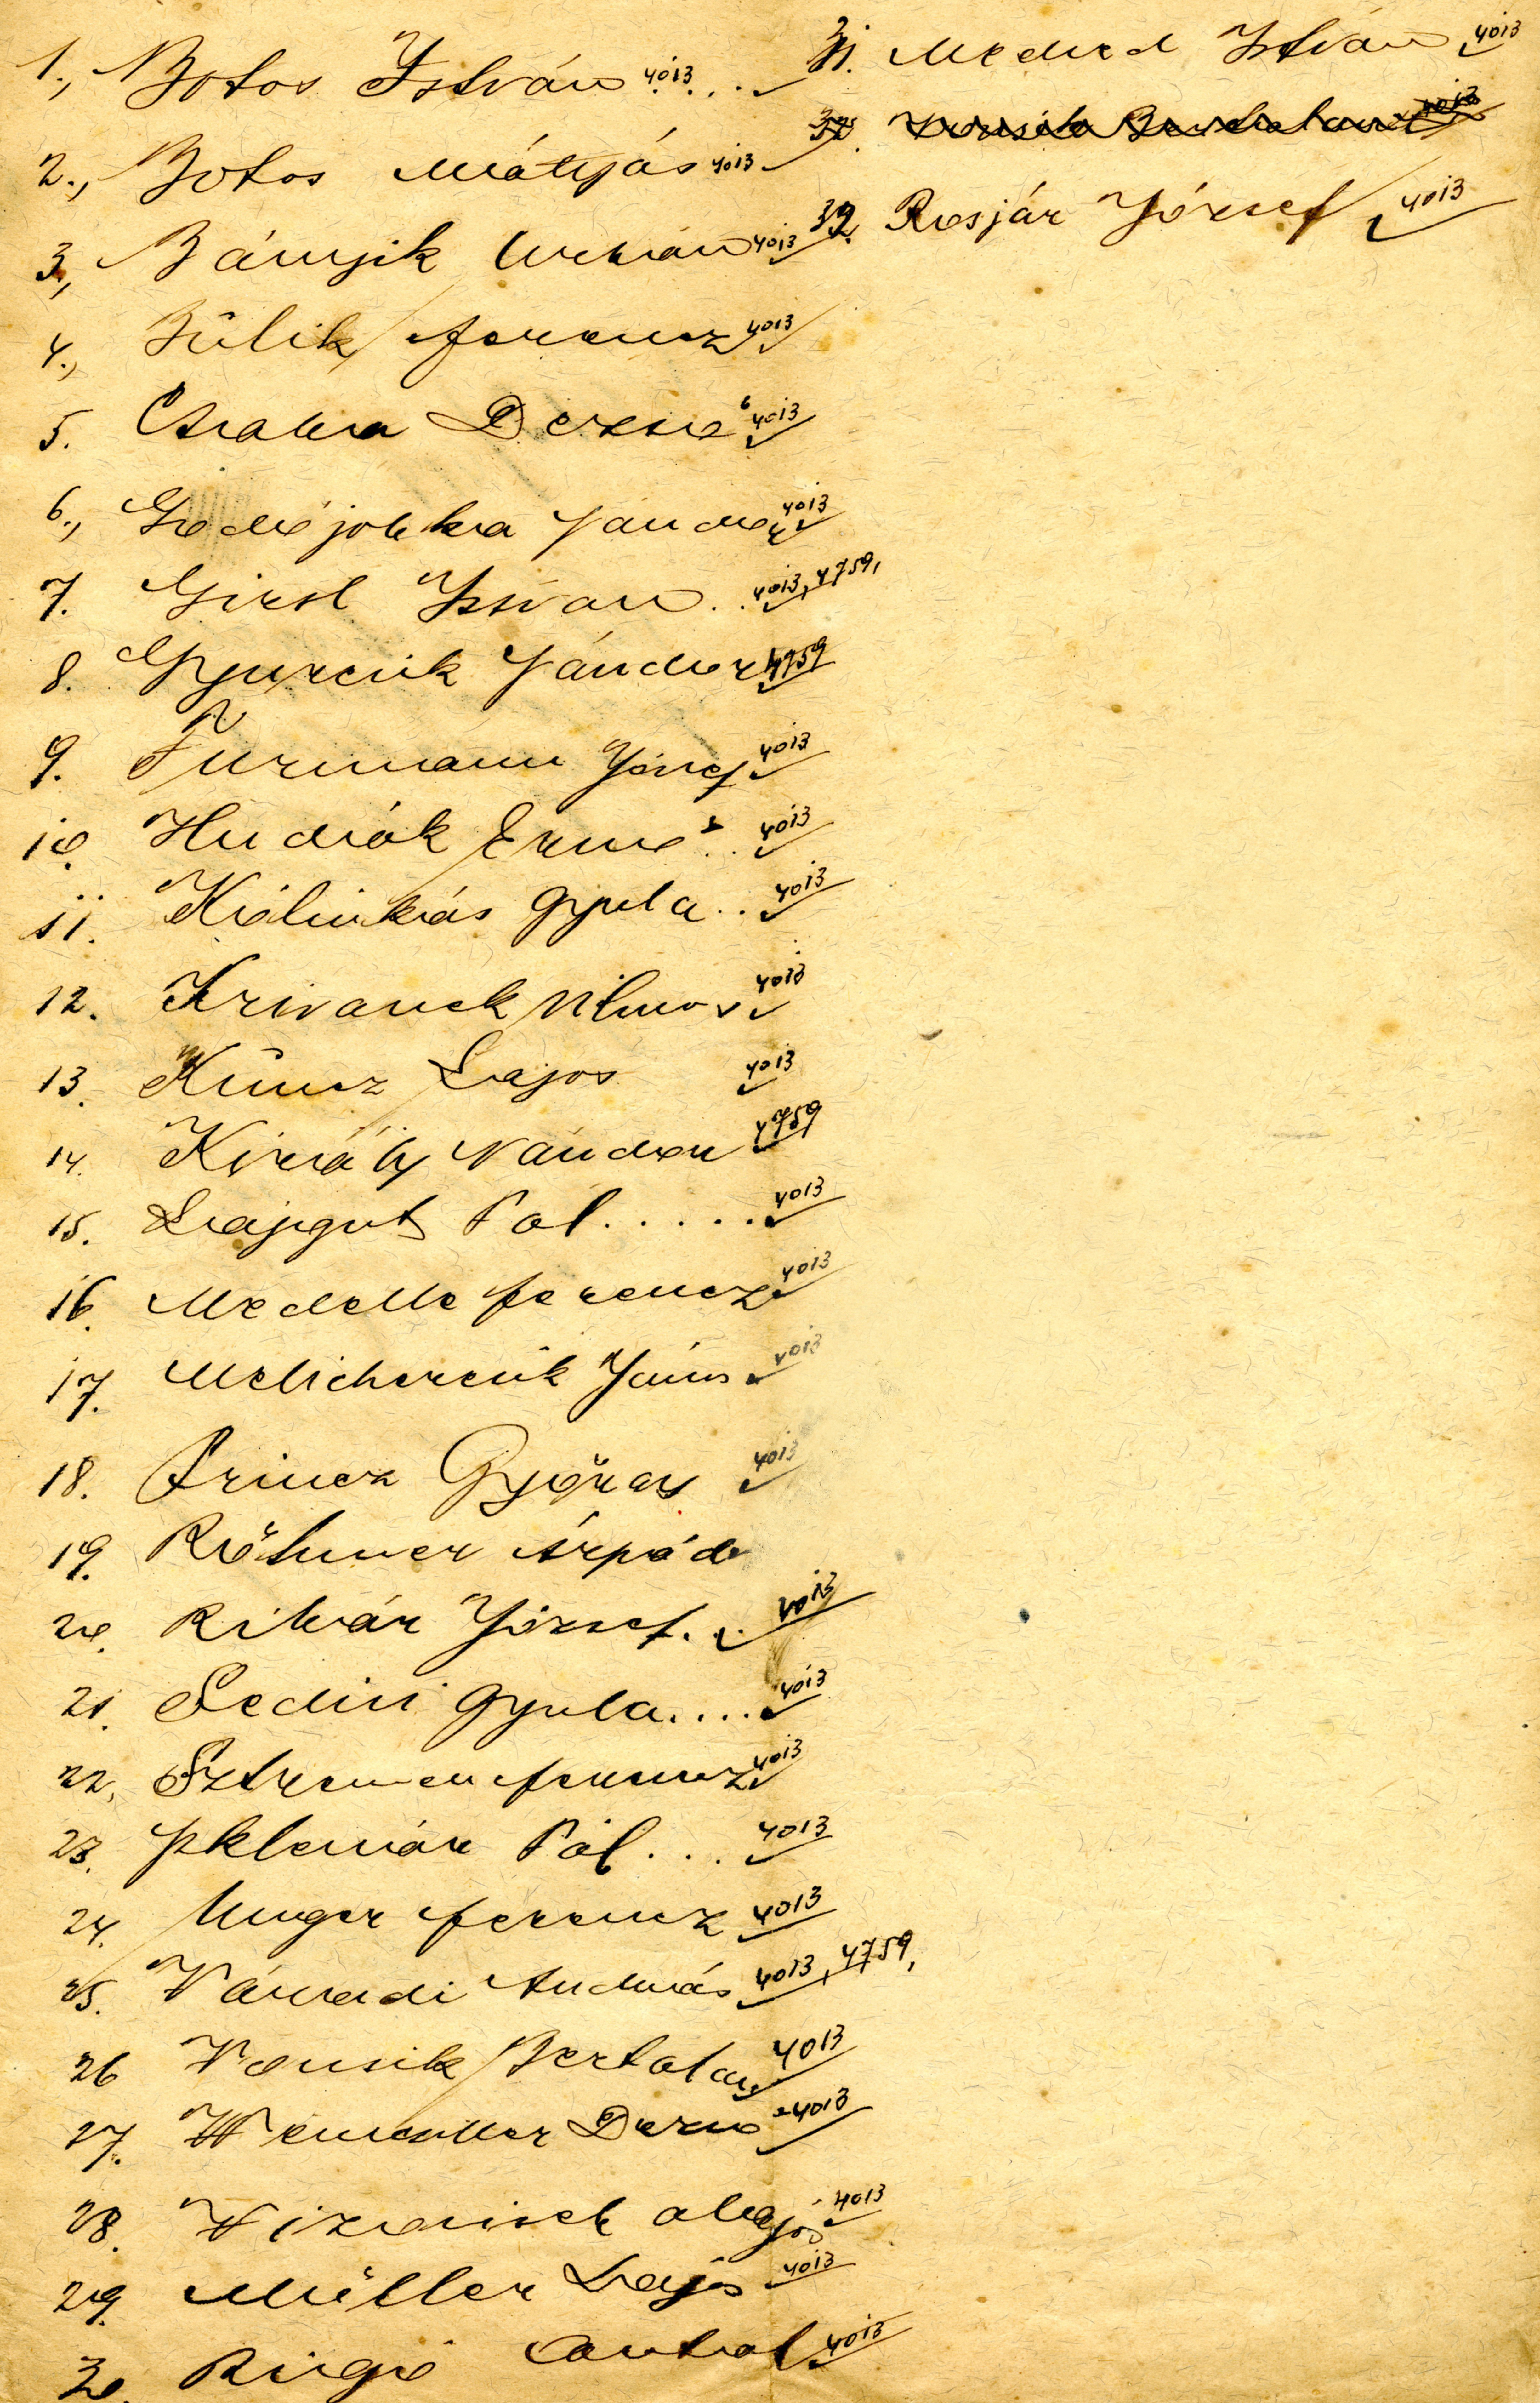 1., Botos István 4013 ...
2., Botos Mátyás 4013
3., Bányik Urbán 4013
4., Bülik Ferencz 4013
5. Csaba Dezső 4013
6., Sándor 4013
7. Girst István .. 4013, 4759,
8. Gyurcsik Sándor 4759
9. Furmann József 4013
10. Hudák Ernő .. 4013
11. Kálinkás Gyula .. 4013
12. Krivanek Vilmos 4013
13. Küncz Lajos 4013
14. Király Nándor 4759
15. Lajgut Pál ..... 4013
16. Medelle Ferencz 4013
17. Melichercsik János 4013
18. Princz György 4013
19. Röhmer Árpád
20. Ribár József. .. 4013
21. Sedivi Gyula .... 4013
22. Ferencz 4013
23. Sklenár Pál ... 4013
24. Unger Ferencz 4013
25. Váradi András 4013, 4759,
26 Vonsik Bertalan 4013
27. Dezső 4013
28. Alajos 4013
29. Müller Lajos 4013
30. Rigó Antal 4013
31. Medved István 4013
32. Rosjár József 4013